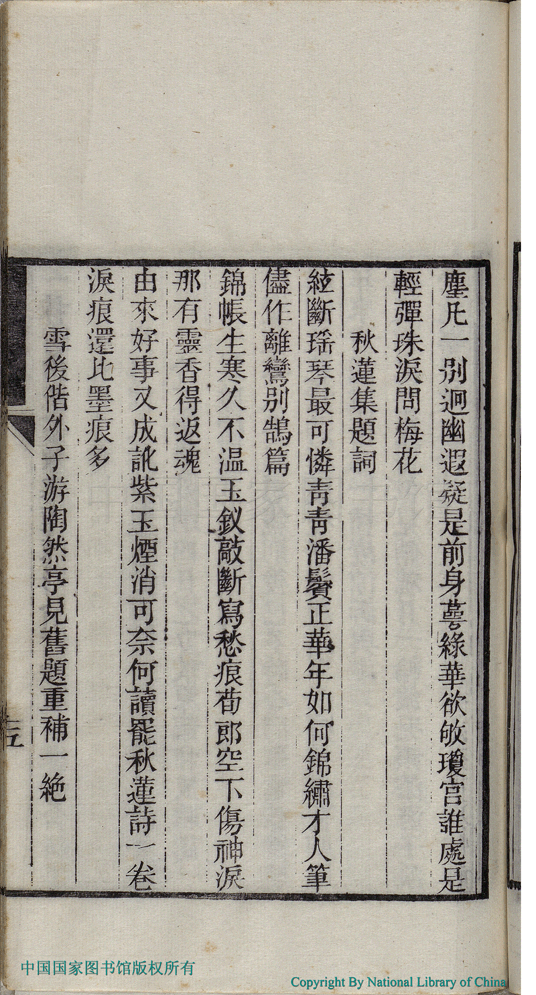 塵凡一別迥幽遐疑是前身萼綠華欲敂瓊宮誰處是
輕彈珠淚問梅花
秋蓮集題詞
絃斷瑤琴最可憐靑靑潘鬢正華年如何錦繡才人筆
儘作離鸞別鵠篇
錦帳生寒久不溫玉釵敲斷寫愁痕荀郎空下傷神淚
那有靈香得返魂
由來好事又成訛紫玉煙消可奈何讀罷秋蓮詩一卷
淚痕還比墨痕多
雪後偕外子游陶然亭見舊題重補一絕
五
中国国家图书馆版权所有
Copyright By National Library of China